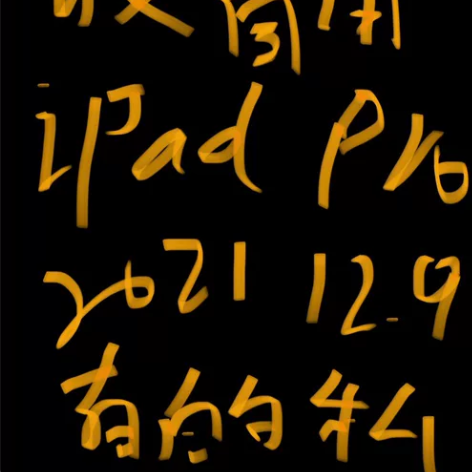 收商用
iPad Pro
2021 12.9
有的私